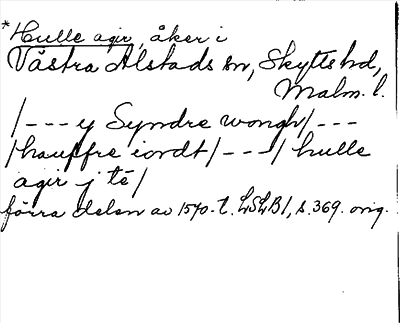 *Hulle agir, åker i
Västra Alstads sn, Skytts hd,
Malm. l.
/---y Syndre wongh/---
/hauffre iordt/---/hulle
agir j te/
förra delen av 1570-t. LSLB1, s. 369. orig.